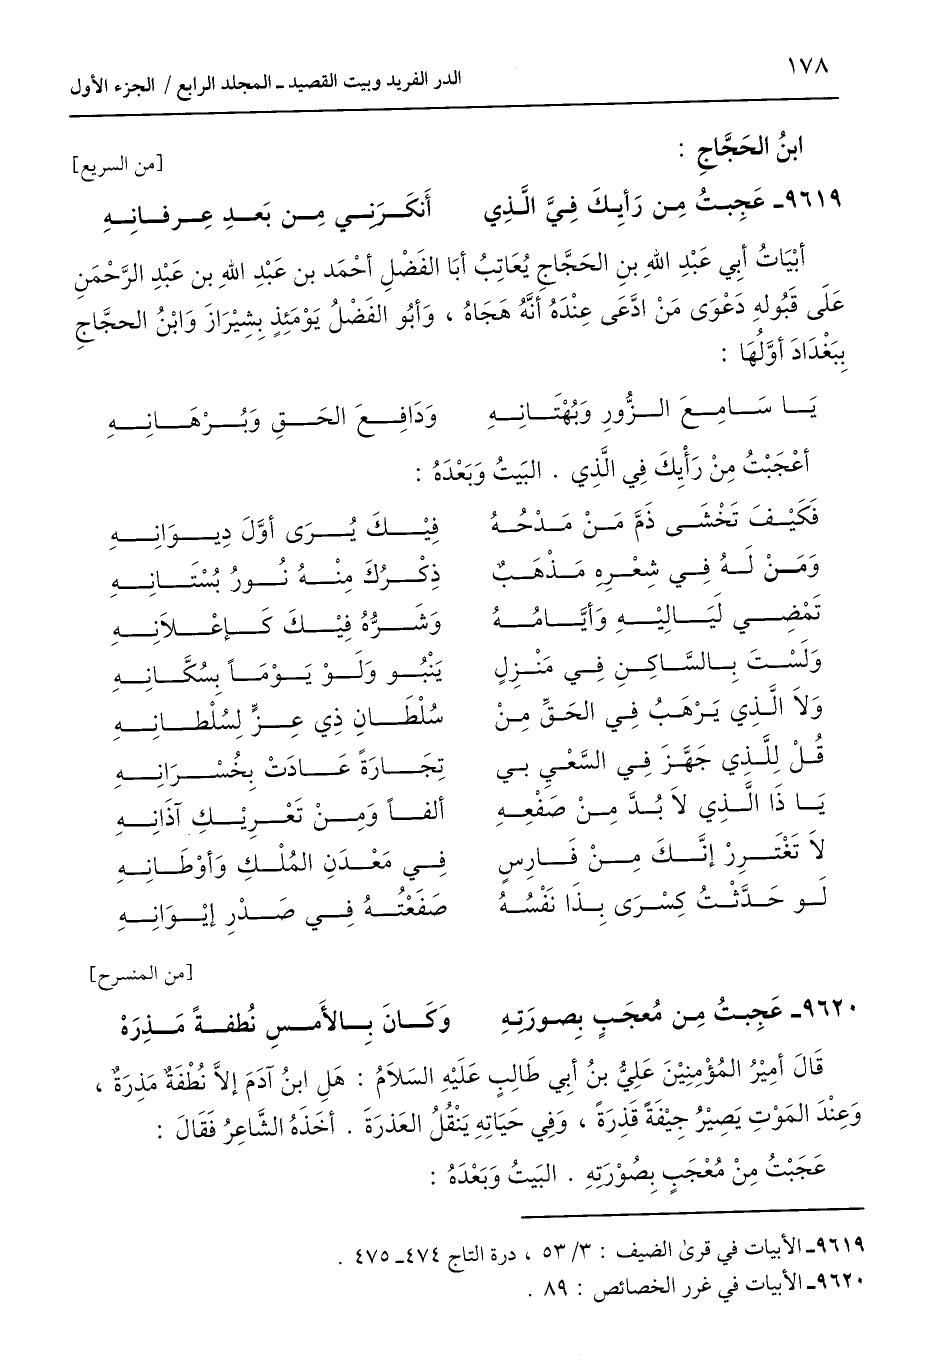 ١٧٨
الدر الفريد وبيت القصيد ـ المجلد الرابع / الجزء الأول
ابنُ الحَجَّاجِ :
[من السريع]
٩٦١٩ـ عَجِبتُ مِن رَأيِكَ فِيَّ الَّذِي أَنكَرَنِي مِن بَعدِ عِرفانِهِ
أَبْيَاتُ أَبِي عَبْدِ اللهِ بنِ الحَجَّاجِ يُعَاتِبُ أبَا الفَضْلِ أحْمَد بن عَبْدِ اللهِ بن عَبْدِ الرَّحْمَنِ
عَلَى قَبُولِهِ دَعْوَى مَنْ ادَّعَى عِنْدَهُ أنَّهُ هَجَاهُ ، وَأبُو الفَضْلُ يَوْمَئِذٍ بِشِيْرَازَ وَابْنُ الحجَّاجِ
بِبَغْدَادَ أوَّلُهَا :
يَا سَامِعَ الزُّورِ وَبُهْتَانِهِ وَدَافِعَ الحَقِ وَبُرْهَانِهِ
أعْجَبْتُ مِنْ رَأْيِكَ فِي الَّذِي . البَيْتُ وَبَعْدَهُ :
فَكَيْفَ تَخْشَى ذَمَّ مَنْ مَدْحُهُ فِيْكَ يُرَى أوَّلَ دِيوَانِهِ
وَمَنْ لَهُ فِي شِعْرِهِ مَذْهَبٌ ذِكْرُكَ مِنْهُ نُورُ بُسْتَانِهِ
تَمْضِي لَيَالِيْهِ وَأيَّامُهُ وَشَرُّهُ فِيْكَ كَإعْلاَنِهِ
وَلَسْتَ بِالسَّاكِنِ فِي مَنْزِلٍ يَنْبُو وَلَوْ يَوْمَاً بِسُكَّانِهِ
وَلاَ الَّذِي يَرْهَبُ فِي الحَقِّ مِنْ سُلْطَانِ ذِي عِزٍّ لِسُلْطَانِهِ
قُلْ لِلَّذِي جَهَّزَ فِي السَّعْيِ بِي تِجَارَةً عَادَتْ بِخُسْرَانِهِ
يَا ذَا الَّذِي لاَ بُدَّ مِنْ صَفْعِهِ ألفَاً وَمِنْ تَعْرِيْكِ آذَانِهِ
لاَ تَغْتَرِرْ إنَّكَ مِنْ فَارِسٍ فِي مَعْدَنِ المُلْكِ وَأوْطَانِهِ
لَو حَدَّثْتُ كِسْرَى بِذَا نَفْسُهُ صَفَعْتُهُ فِي صَدْرِ إيْوَانِهِ
[من المنسرح]
٩٦٢٠ـ عَجِبتُ مِن مُعجَبٍ بِصورَتِهِ وَكَانَ بِالأَمسِ نُطفةً مَذِرَهْ
قَالَ أمِيْرُ المُؤْمِنِيْنَ عَلِيُّ بنُ أبِي طَالِبٍ عَلَيْهِ السَّلاَمُ : هَلِ ابنُ آدَمَ إلاَّ نُطْفَةٌ مَذِرَةٌ ،
وَعِنْدَ المَوْتِ يَصِيْرُ جِيْفَةً قَذِرَةً ، وَفِي حَيَاتِهِ يَنْقُلُ العَذرَةَ . أخَذَهُ الشَّاعِرُ فَقَالَ :
عَجَبْتُ مِنْ مُعْجَبٍ بِصُوْرَتِهِ . البَيْتُ وَبَعْدَهُ :
٩٦١٩ـ الأبيات في قرى الضيف : ٣/ ٥٣ ، درة التاج ٤٧٤ـ ٤٧٥ .
٩٦٢٠ـ الأبيات في غرر الخصائص : ٨٩ .